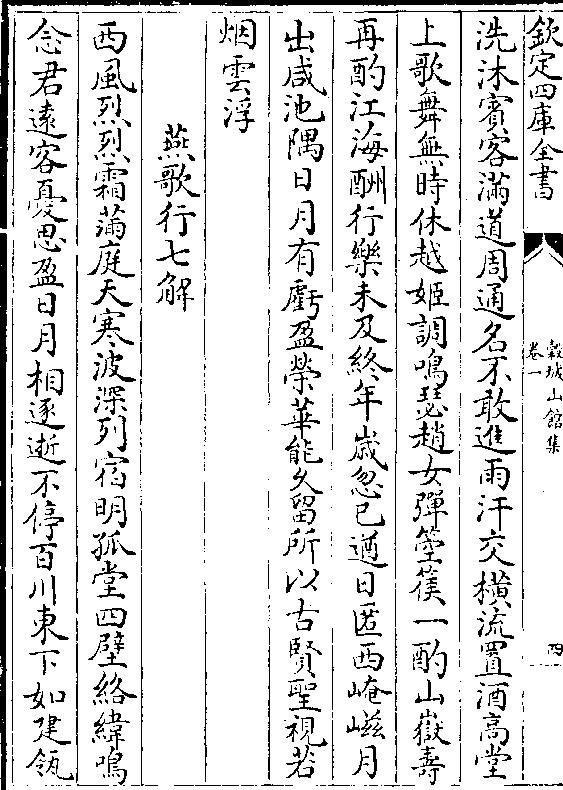 欽定四庫全書
榖城山館集
卷一
四
洗沐賓客滿道周通名不敢進雨汗交橫流置酒高堂
上歌舞無時休越姬調鳴瑟趙女彈箜篌一酌山嶽壽
再酌江海酬行樂未及終年嵗忽已遒日匿西崦嵫月
出咸池隅日月有虧盈榮華能久留所以古賢聖視若
烟雲浮
燕歌行七解
西風烈烈霜滿庭天寒波深列宿明孤堂四壁絡緯鳴
念君遠客憂思盈日月相逐逝不停百川東下如建瓴